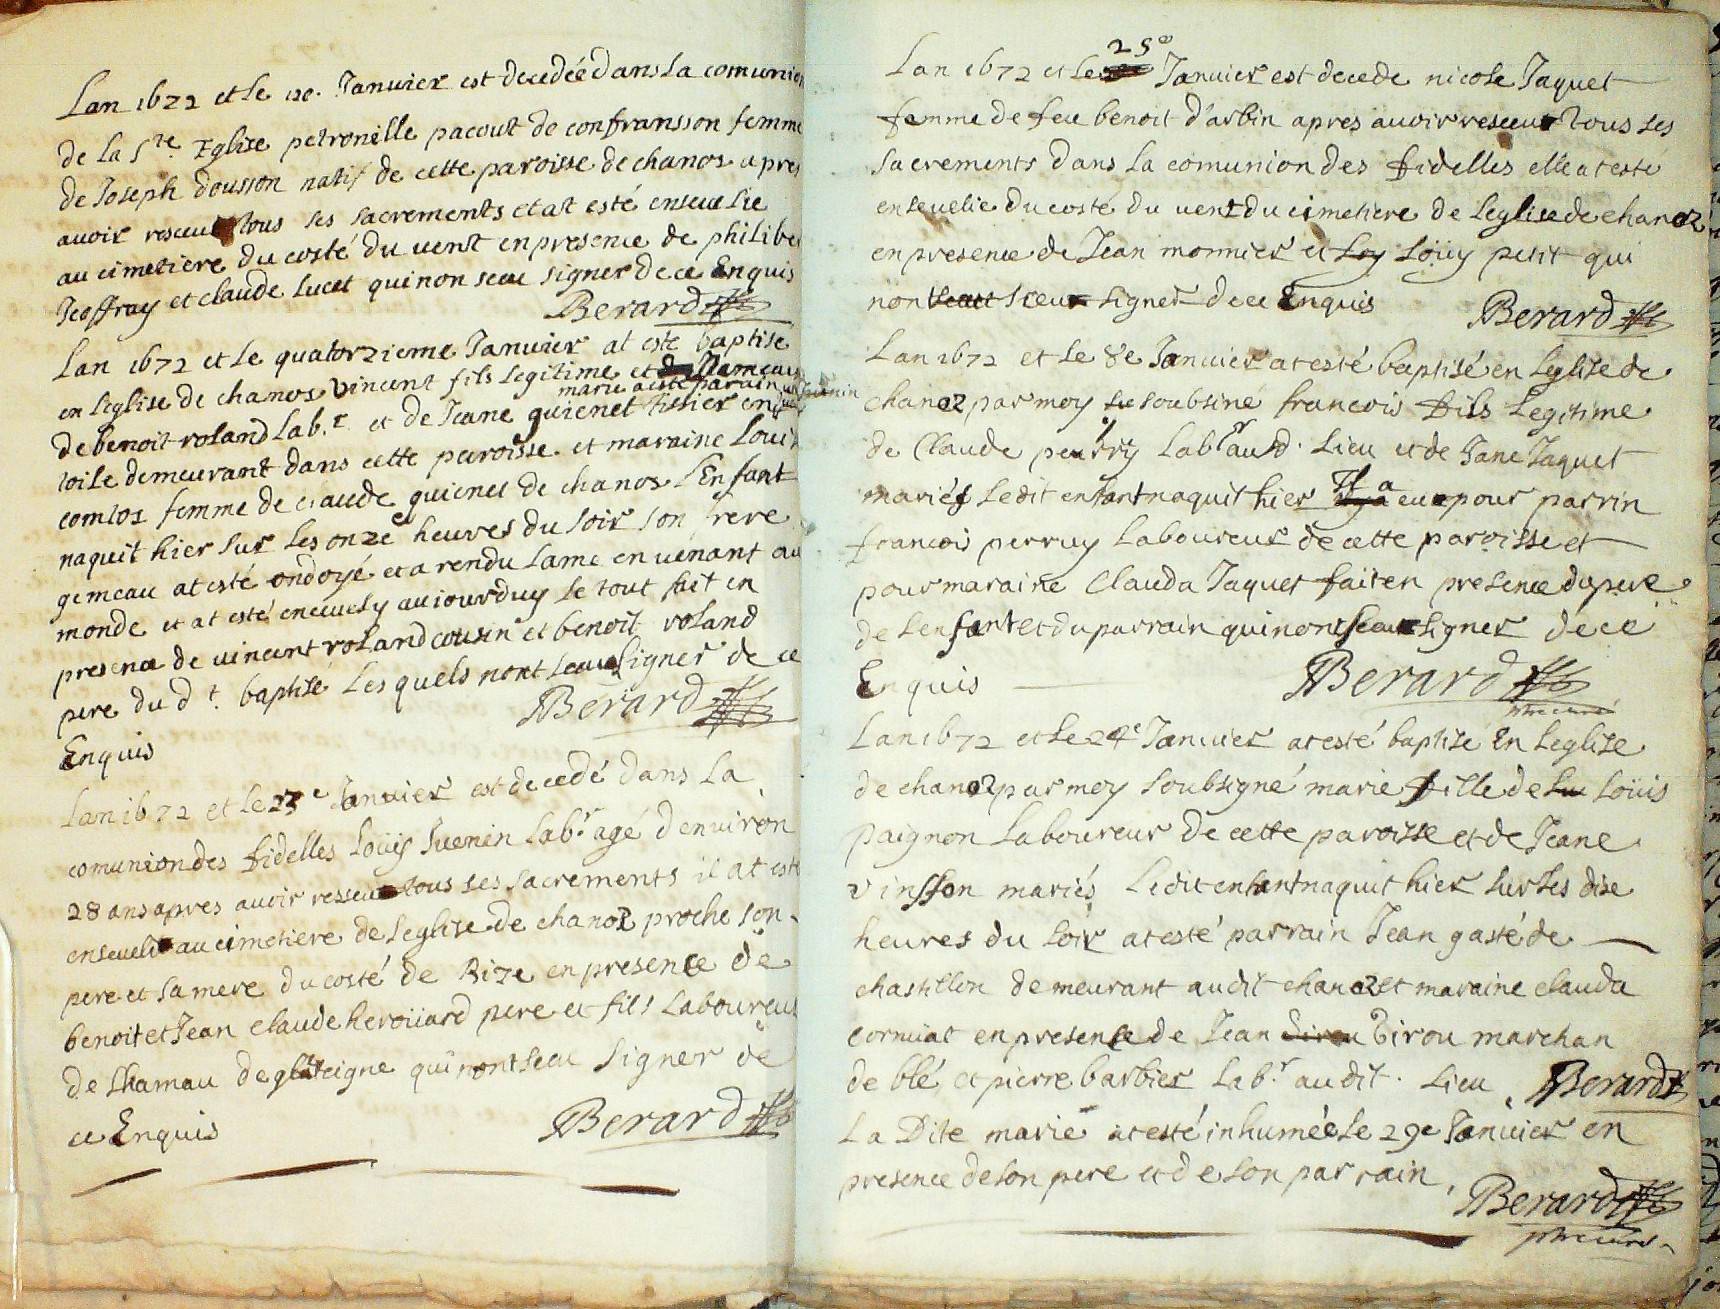 Lan 1672 et Le 10e. Januier est decedée dans La comunion
de La Ste. Eglise petronille pacout de confransson femme
de Joseph dousson natif de cette paroisse de chanos apres
auoir resceut tous ses sacrements et at esté enseuelie
au cimetiere du costé du uent en presence de philiber
Jeoffray et claude Lucet qui non sceu signer de ce Enquis
Berard
Lan 1672 et Le quatorzieme Januier at esté baptisé
en Leglise de chanos vincent fils Legitime et
marié a esté parain
de benoit roland Labr. et de Jeane guienet tissier en
toile demeurant dans cette paroisse. et maraine Loui
femme de claude guienet de chanos LEnfant
naquit hier sur Les onze heures du soir son frere
gemeau at esté ondoyé et a rendu Lame en uenant au
monde et at esté enceuely auiourduy Le tout fait en
presence de uincent roland cousin et benoit roland
pere du dt. baptisé Lesquels nont sceu signer de ce
Berard
Enquis
Lan 1672 et Le 23e Januier est decedé dans La
comunion des fidelles Loüis Juenin Labr agé denuiron
28 ans apres auoir resseut tous ses sacrements il at esté
enseueli au cimetiere de Leglise de chanoz proche son
pere et sa mere du costé de Bize en presence de
benoit et Jean claude heroüard pere et fils Laboureur
de Lhamau de qui nont sceu signer de
ce Enquis
Berard
25e
Lan 1672 et Le Januier est decede nicole Jaquet
femme de feu benoit d'arbin apres auoir resceut tous ses
sacrements dans La comunion des fidelles elle at esté
enseuelie du costé du uent du cimetiere de Leglise de chanoz
en presence de Jean monnier et Loy Loüy petit qui
non sceut sceu signer de ce Enquis
Berard
Lan 1672 et Le 8e Januier at esté baptisé en Leglise de
chanoz par moy su soubsiné francois fils Legitime
de Claude perruy Labr aud. Lieu et de Jane Jaquet
mariés Ledit enfant naquit hier Il a eu pour parrin
francois perruy Laboureur de cette paroisse et
pour maraine Clauda Jaquet fait en presence du pere
de Lenfant et du parrain qui nont sceu signer de ce
Enquis
Berard
ptre curé
Lan 1672 et Le 24e Januier at esté baptisé En Leglise
de chanoz par moy soubsigné marie fille de Lu Loüis
paignon Laboureur de cette paroisse et de Jeane
vinsson mariés Ledit enfant naquit hier sur Les dise
heures du soir at esté parrain Jean gasté de
chastillon demeurant audit chanoz et maraine clauda
cornuat en presence de Jean Tirou marchan
de blé et pierre barbier Labr. audit. Lieu
Berard
La Dite marie at esté inhumée Le 29e Januier en
presence de son pere et de son parrain
Berard
ptre curé